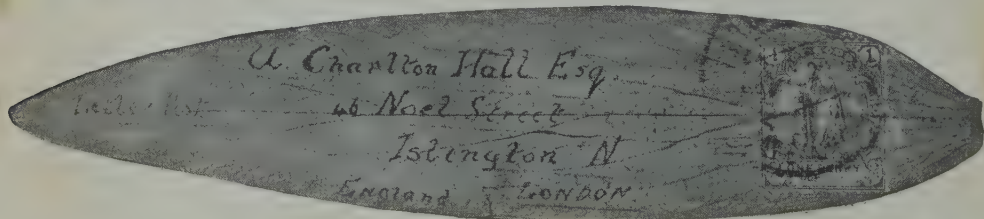 U Charlton Hall Esq.
46 Noel Street
Islington N
England, LONDON.